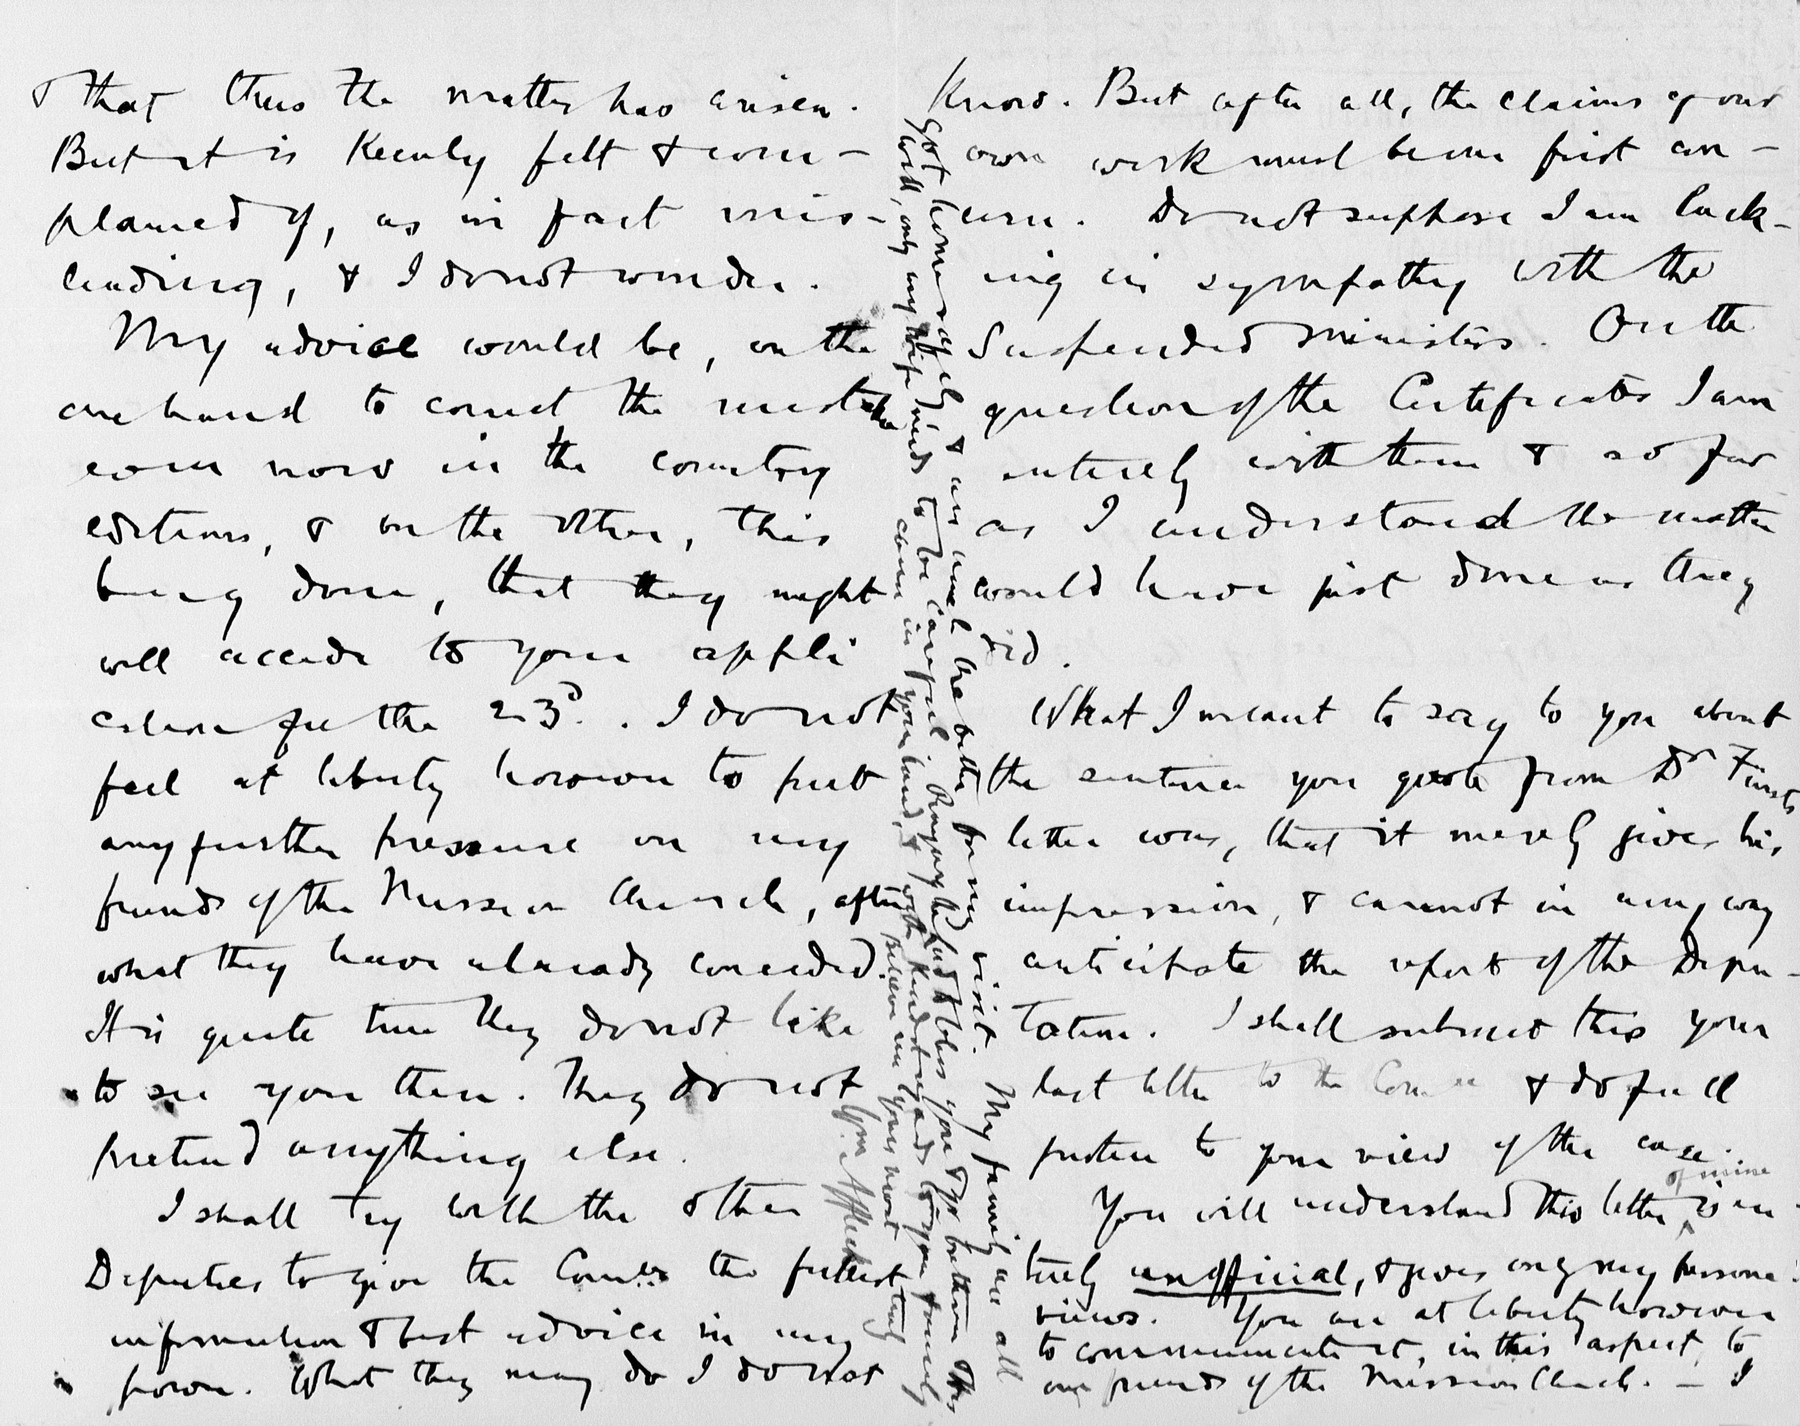 & that thus the matter has arisen.
But it is keenly felt & com-
plained of, as in fact mis-
leading, & I do not wonder.
My advice would be, on the
one hand to correct the mistake
even now in the country
editions, & on the other, this
being done, that they might
will accede to your appli
cation for the 23d. I do not
feel at liberty however to put
any further pressure on my
friends of the Mission Church, after
what they have already conceded.
It is quite true they do not like
to see you there. They do not
pretend anything else.
I shall try with the other
Deputies to give the Comee the fullest
information & best advice in my
power. What they may do I do not
know. But after all, the claims of our
own work must be our first con-
cern. Do not suppose I am lack-
ing in sympathy with the
Suspended Ministers. On the
question of the Certificates I am
entirely with them & so far
as I understand the matter
would have just done as they
did.
What I meant to say to you about
the sentence you quote from Dr
letter was, that it merely gives his
impression, & cannot in any way
anticipate the report of the Depu-
tation. I shall submit this your
last letter to the & do full
justice to your view of the case.
You will understand this letter of mine is en-
tirely unofficial, & gives only my personal
views. You are at liberty however
to communicate it, in this aspect, to
our friends of the Mission Church. — I
got home safely & am much the better for my visit. My family are all
well, only my wife needs to be careful. Praying the Lord to bless you & yr brethren this
come in your land, & with kindest regards to you & family
believe me yours most truly
Wm Affleck